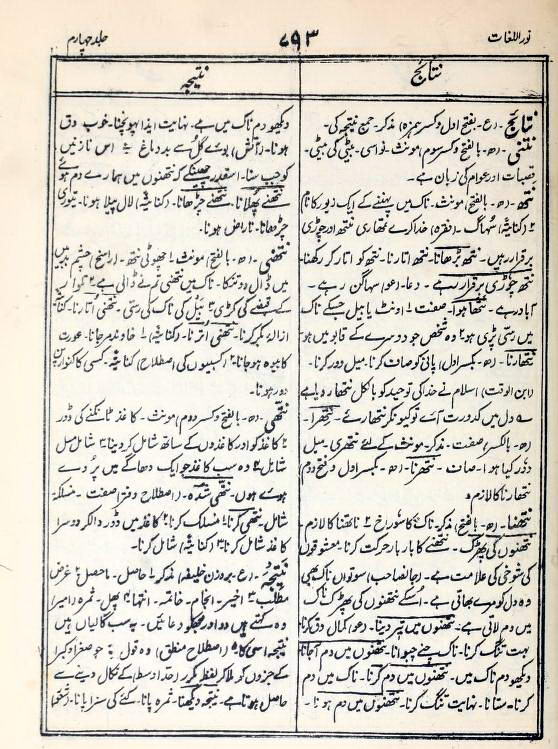 نور اللغات
۷۹۳
جلد چہارم
نتائج
نتیجہ
نتائج ۔ (ع ۔ بفتح اول وکسر ہمزہ) مذکر ۔ جمع نتیجہ کی ۔
نتنی ۔ (ھ ۔ بالفتح وکسر سوم) مونث ۔ نواسی ۔ بیٹی کی بیٹی ۔
قصبات اور عوام کی زبان ہے ۔
نتھ ۔ (ھ ۔ بالفتح) مونث ۔ ناک میں پہننے کے ایک زیور کا نام
۲ (کنایۃً) سُہاگ ۔ (فقرہ) خدا کرے تمھاری نتھ اور چوڑی
برقرار رہیں ۔ نتھ بڑھانا ۔ نتھ اتارنا ۔ نتھ کو اتار کر رکھنا ۔
نتھ چوڑی برقرار رہے ۔ دعا ۔ (عو) سہاگن رہے ۔
آباد رہے ۔ نتھا ہوا ۔ صفت ۱ اونٹ یا بیل جسکے ناک
میں رسّی پڑی ہو ۲ وہ شخص جو دوسرے کے قابو میں ہو
نتھارنا ۔ (ھ ۔ بکسر اول) پانی کو صاف کرنا ۔ میل دور کرنا ۔
(ابن الوقت) اسلام نے خدا کی توحید کو بالکل نتھار دیا ہے
دل میں کدورت آئے تو کیونکر نتھارئے ۔ نتھرا ۔
(ھ ۔ بالکسر) صفت ۔ مذکر ۔ مونث کے لئے نتھری ۔ میل
دور کیا ہوا ۔ صاف ۔ نتھرنا ۔ (ھ ۔ بکسر اول و فتح دوم
نتھارنا کا لازم ۔
نتھنا ۔ (ھ ۔ بالفتح) مذکر ۔ ناک کا سوراخ ۲ ناتھنا کا لازم ۔
نتھنوں کی پھڑک ۔ نتھنے کا بار بار حرکت کرنا ۔ معشوقوں
کی شوخی کی علامت ہے ۔ (جانصاحب) سوتواں ناک بھی
وہ دل کو مرے بھاتی ہے ۔ اُسکے نتھنوں کی پھڑک ناک
میں دم لاتی ہے ۔ نتھنوں میں تیر دینا ۔ (عو) کمال دق کرنا
بہت تنگ کرنا ۔ ناک چنے چبوانا ۔ نتھنوں میں دم آجانا
دیکھو دم ناک میں ۔ نتھنوں میں دم کرنا ۔ ناک میں دم
کرنا ۔ ستانا ۔ نہایت تنگ کرنا ۔ نتھنوں میں دم ہونا ۔
دیکھو دم ناک میں ہے ۔ نہایت ایذا پہونچنا ۔ خوب دق
ہونا ۔ (آتش) بوئے گل سے بد دماغ اس نازنیں
کو جب سنا ۔ اسقدر چھینکے کہ نتھنوں میں ہمارے دم ہوئے
نتھنے پھلانا ۔ نتھنے چڑھانا ۔ (کنایۃً) لال پیلا ہونا ۔ تیوری
چڑھانا ۔ ناراض ہونا ۔
نتھنی ۔ (ھ ۔ بالفتح) مونث ۱ چھوٹی نتھ ۔ (راسخ) چشم بد بیں
میں ڈال دو تنکا ۔ ناک میں نتھنی تم نے ڈالی ہے ۲
کے قبضے کی کڑی ۳ بیل کی ناک کی رسّی ۔ نتھنی اتارنا ۔ کنایۃً
ازالۂ بکر کرنا ۔ نتھنی اترنا ۔ (کنایۃً) ۱ خاوند مرجانا ۔ عورت
کا بیوہ ہوجانا ۲ (کسبیوں کی اصطلاح) کنایۃً ۔ کسی کا کنوارپن
دور ہونا ۔
نتھی ۔ (ھ ۔ بالفتح وکسر دوم) مونث ۔ کاغذ ٹانکنے کی ڈور
۲ کاغذ کو اور کاغذوں کے ساتھ شامل کر دینا ۳ شامل مسل
شامل ۴ وہ سب کاغذ جو ایک دھاگے میں پروئے
ہوئے ہوں ۔ نتھی شدہ ۔ (اصطلاح دفتر) صفت ۔ منسلکہ
شامل ۔ نتھی کرنا ۱ منسلک کرنا ۲ کاغذ میں ڈور ڈالکر دوسرا
کاغذ شامل کرنا ۳ (کنایۃً) شامل کرنا ۔
نتیجہ ۔ (ع ۔ بروزن خلیفہ) مذکر ۱ حاصل ۔ ماحصل ۲ غرض
مطلب ۳ اخیر ۔ انجام ۔ خاتمہ ۔ انتہا ۴ پھل ۔ ثمرہ (امیر)
وہ کہتے ہیں دو اور مجھکو دعائیں ۔ یہ سب گالیاں ہیں
نتیجہ اسی کا ۵ (اصطلاح منطق) وہ قول جو صغرا و کبرا
کے جزوں کو ملا کر لفظ مکرر (حد اوسط) کے نکال دینے سے
حاصل ہوتا ہے ۔ نتیجہ دیکھنا ۔ ثمرہ پانا ۔ کئے کی سزا پانا ۔ (شوق)